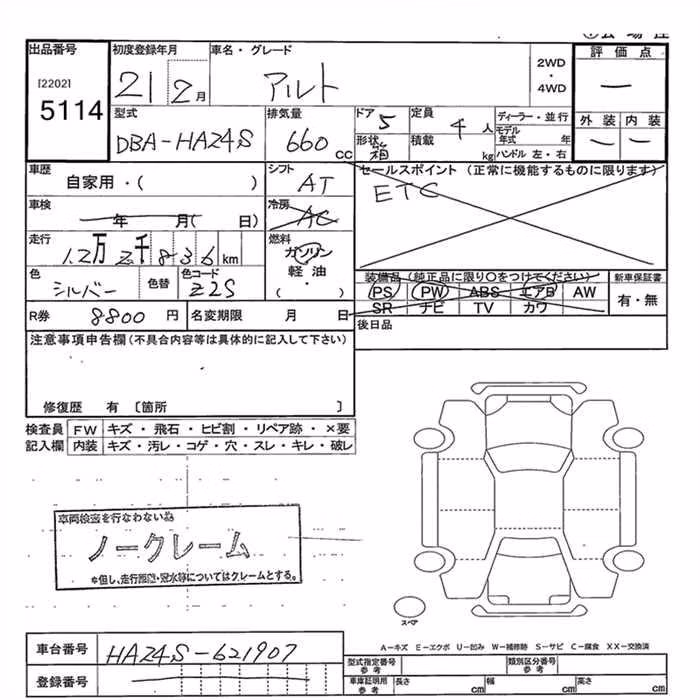 出品番号 初度登録年月 車名・グレード 2WD・4WD 評価点
[2202] 5114 21 2月 アルト 一
型式 排気量 ドア 定員 ディーラー・並行 外装 内装
DBA-HA24S 660cc 5 4人 モデル年式 年 一 一
形状 箱 積載 kg ハンドル 左・右
車歴 シフト セールスポイント (正常に機能するものに限ります)
自家用・( ) AT ETC
車検 年 月( 日) 冷房 AC
走行 12万2千836km 燃料 ガソリン
軽油・( )
色 色替 色コード 装備品(純正品に限り○をつけてください) 新車保証書
シルバー Z2S PS PW ABS エアB AW 有・無
SR ナビ TV カワ
R券 8800円 名変期限 月 日 後日品
注意事項申告欄(不具合内容等は具体的に記入して下さい)
修復歴 有 〔箇所 〕
検査員 FW キズ・飛石・ヒビ割・リペア跡・×要
記入欄 内装 キズ・汚レ・コゲ・穴・スレ・キレ・破レ
車両検査を行なわない為
ノークレーム
※但し、走行距離・冠水等についてはクレームとする。
スペア
A-キズ E-エクボ U-凹み W-補修跡 S-サビ C-腐食 XX-交換済
車台番号 HA24S-621907
型式指定番号 参考 類別区分番号 参考
登録番号 車庫証明用 参考 長さ cm 幅 cm 高さ cm